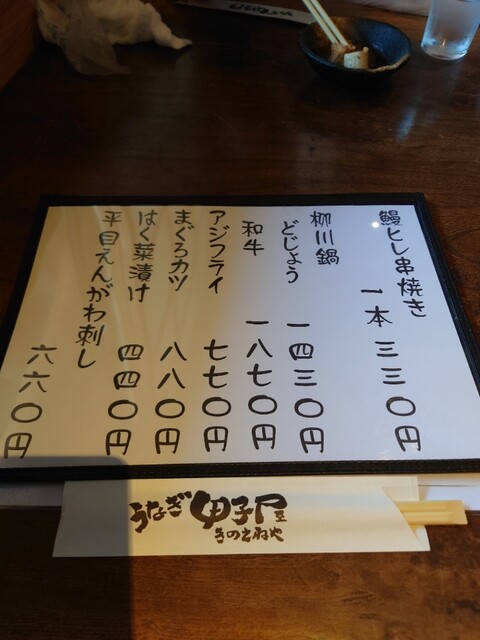 鰻ヒレ串焼き
一本 三三〇円
柳川鍋
どじょう 一四三〇円
和牛 一八七〇円
アジフライ 七七〇円
まぐろカツ 八八〇円
はく菜漬け 四四〇円
平目えんがわ刺し
六六〇円
うなぎ 甲子屋
きのえねや